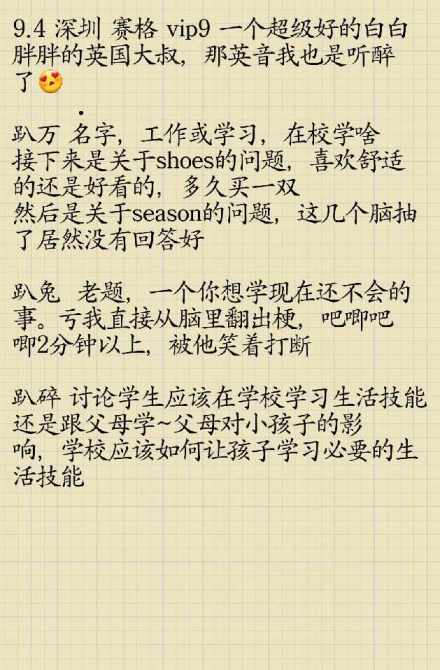 9.4 深圳 赛格 vip9 一个超级好的白白
胖胖的英国大叔，那英音我也是听醉
了😍
趴万 名字，工作或学习，在校学啥
接下来是关于shoes的问题，喜欢舒适
的还是好看的，多久买一双
然后是关于season的问题，这几个脑抽
了居然没有回答好
趴兔 老题，一个你想学现在还不会的
事。亏我直接从脑里翻出梗，吧唧吧
唧2分钟以上，被他笑着打断
趴碎 讨论学生应该在学校学习生活技能
还是跟父母学~父母对小孩子的影
响，学校应该如何让孩子学习必要的生
活技能